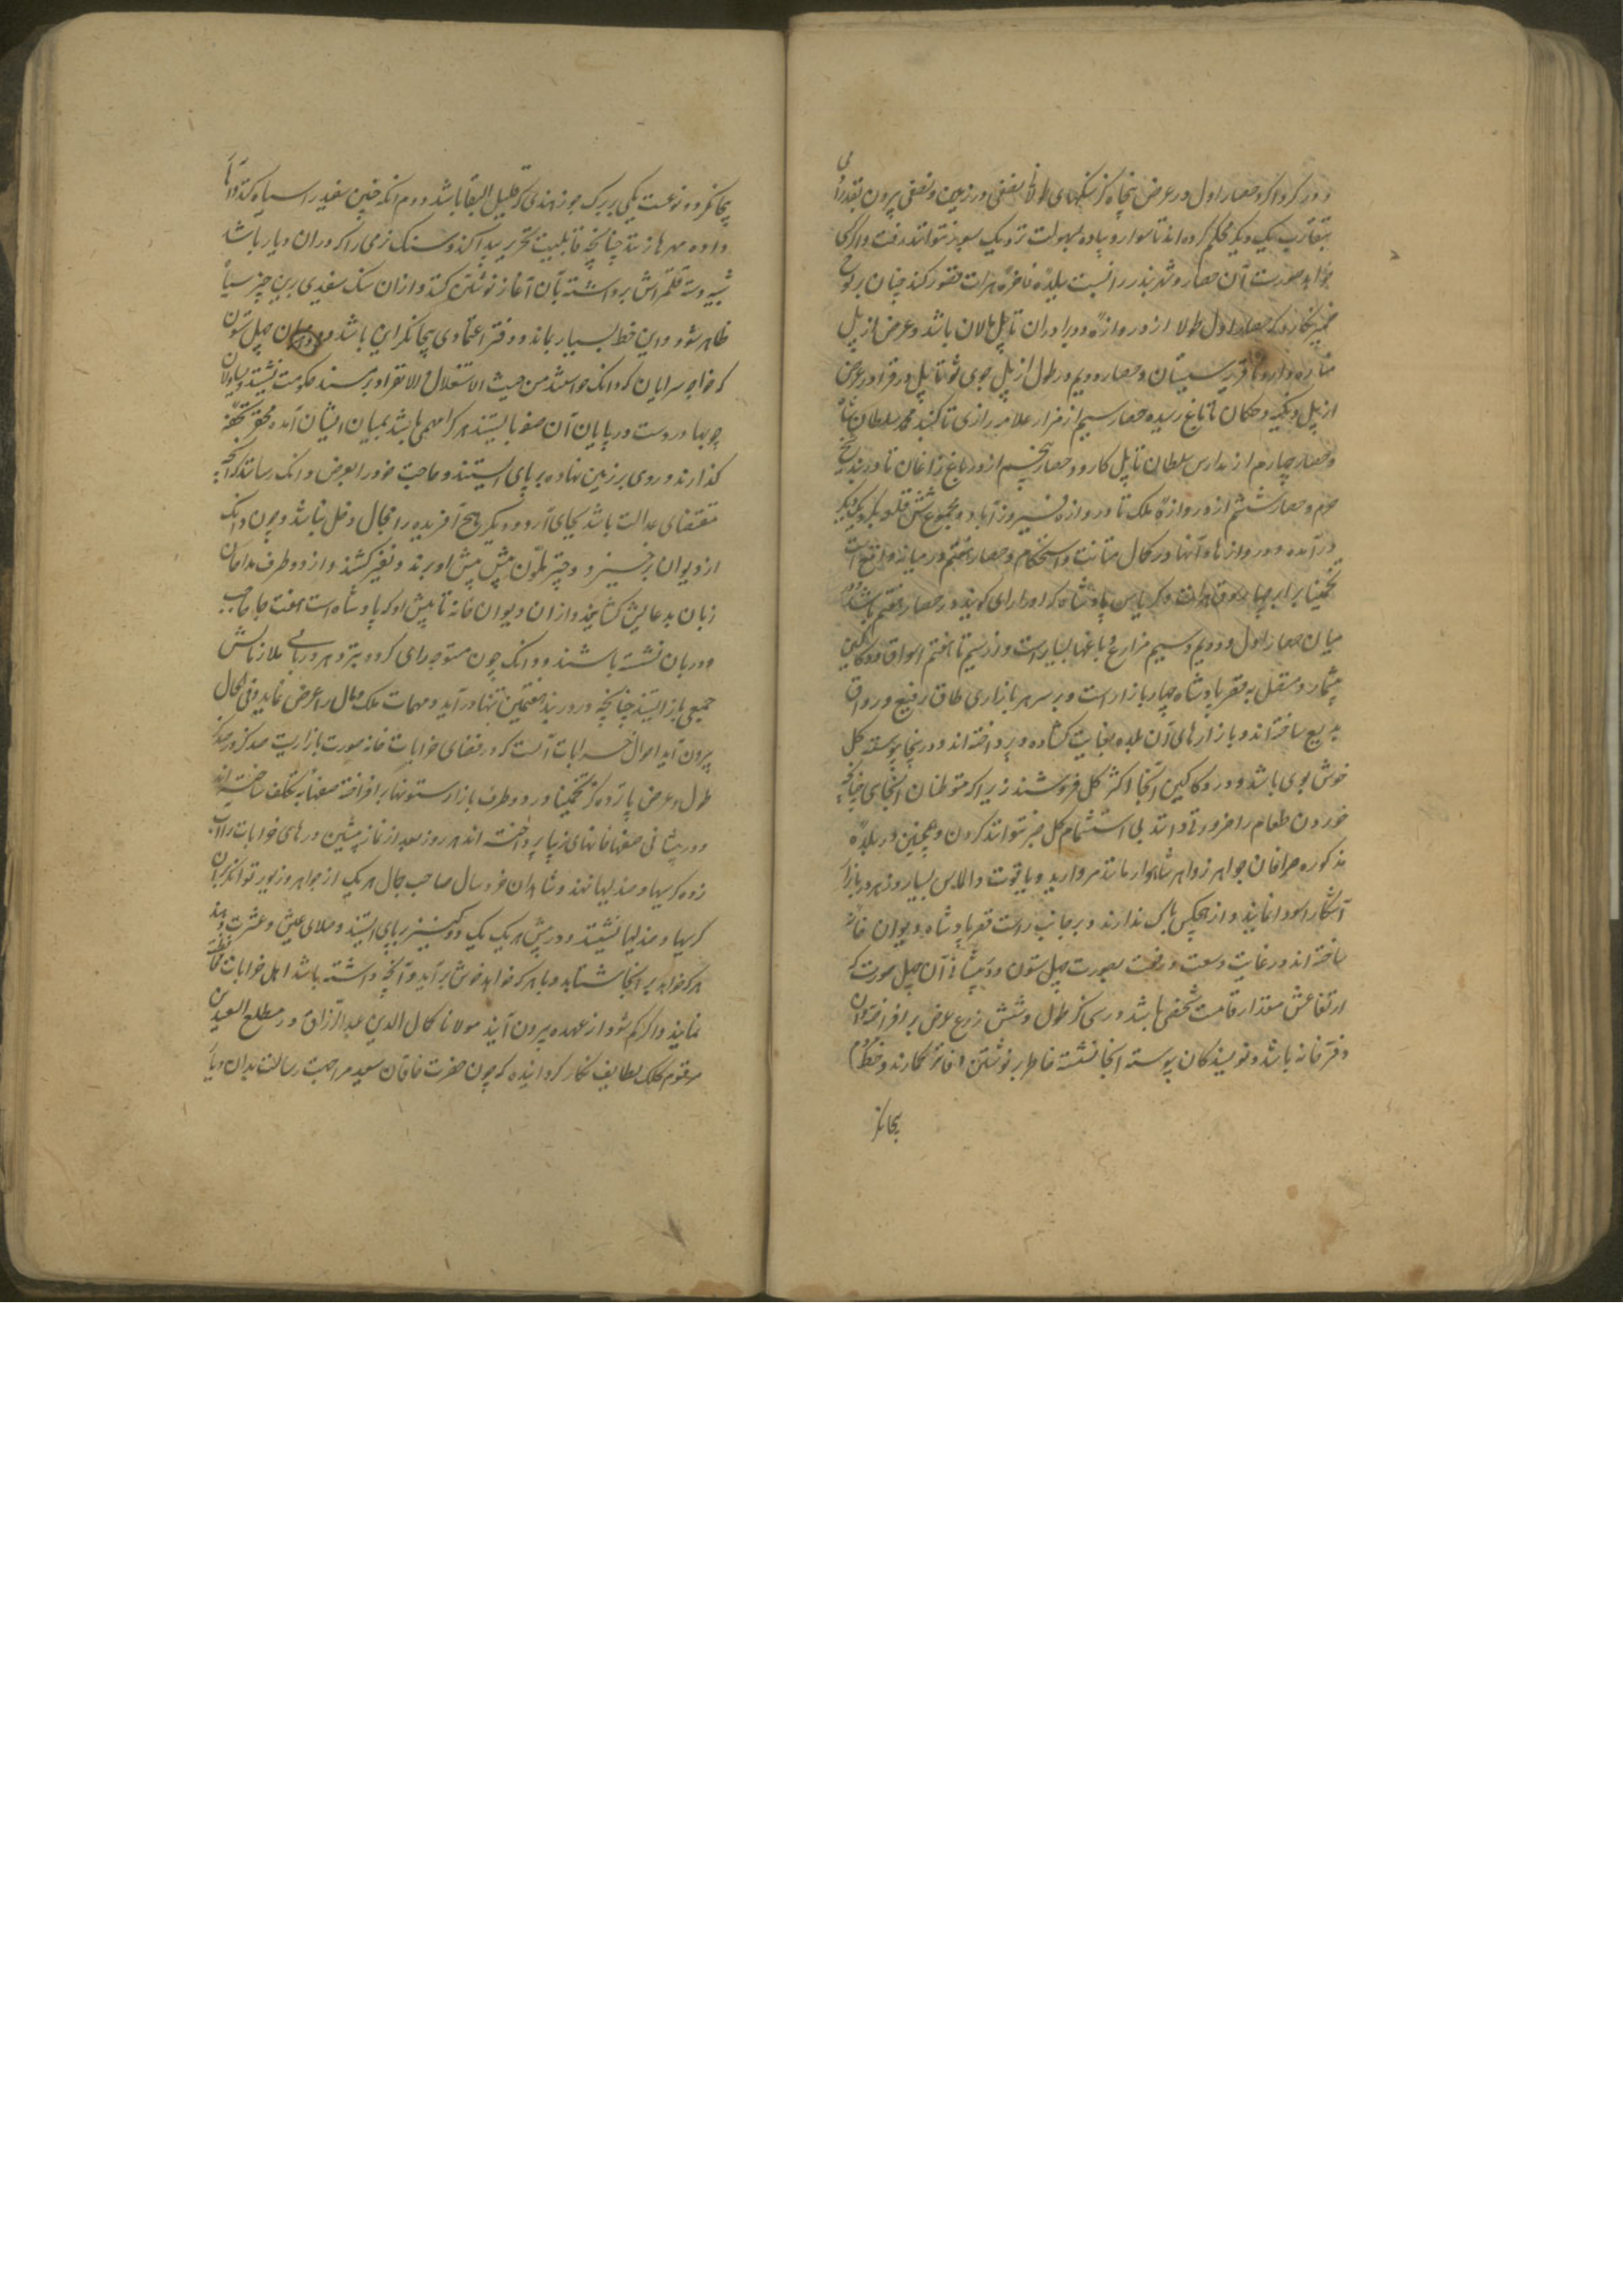 و در کرداکرد حصار اول در عرض پنجاه کز سنکهای طولا نصفی در زمین و نصفی بیرون بقدر
بتقارب یک دیکر محکم کرده‌اند تا سوار و پیاده بسهولت نزدیک سور نتواند رفت و اکر کسی
خواهد صورت آن حصار و شهربند را نسبت ببلده فاخره هرات تصور کند چنان بر لوح
ضمیر نکارد که حصار اول طولا از دروازه دوبرادران تا پل مالان باشد و عرض از پل
و حصار دویم در طول از پل جوی نو تا پل و در عرض
از پل و تکیه تا باغ زبیده حصار سیم از مزار علامه رازی تا کنبد محمد سلطان شاه
و حصار چهارم از مدارس سلطان تا پل کارد و حصار پنجم از در باغ زاغان تا در بند
و حصار ششم از دروازه ملک تا دروازه فیروزآباد و مجموع شش قلعه بکرد یکدیکر
درآمده و دروازها و آنها در کمال متانت و استحکام و حصار هفتم در میانه واقع است
تخمینا برابر چهارسوق هرات و کریاس پادشاه که او را رای کویند در حصار هفتم باشد و در
میان حصار اول و دویم و سیم مزارع و باغها بسیار است و از سیم تا هفتم اسواق و دکاکین
بیشمار و متصل بقصر پادشاه چهار بازار است و بر سر هر بازاری طاق رفیع و رواق
بدیع ساخته‌اند و بازارهای آن بلده بغایت کشاده و پرداخته‌اند و در آنجا پیوسته کل
خوش بوی باشد و در دکاکین آنجا اکثر کل فروشند زیرا که متوطنان آنجای چنانچه
خوردن طعام را ضرور می‌دانند بی استشمام کل صبر نتوانند کردن و همچنین در بلده
مذکوره صرافان جواهر زواهر شاهوار مانند مروارید و یاقوت و الماس بسیار در هر بازار
آشکارا سودا نمایند و از هیچکس باک ندارند و بر جانب راست قصر پادشاه دیوان خانه
ساخته‌اند در غایت وسعت و رفعت بصورت چهل ستون و در پیشانی آن چهل صورت که
ارتفاعش مقدار قامت شخصی باشد در سی کز طول و شش ذرع عرض برافراخته و آن
دفترخانه باشد و نویسندکان پیوسته آنجا نشسته خاطر بر نوشتن دفاتر کمارند و خط مردم
بیجانکر
بیجانکر دو نوعست یکی بر برک جوز هندی که قلیل البقا باشد و دوم آنکه جنس سفید را سیاه کنند و آهار
داده مهره زنند چنانچه قابلیت تحریر پیدا کند و سنک نرمی را که در آن دیار باشد
شبیه دسته قلمتراش برداشته بآن آغاز نوشتن کنند و از آن سنک سفیدی برین چیز سیاه
ظاهر شود و این خط بسیار بماند و دفتر اعتمادی بیجانکر این باشد و در میان چهل ستون
که خواجه سرایان که دانک خواستند من حیث الاستقلال و الانفراد بر مسند حکومت نشسته و یساولان
چوبها در دست در پایان آن صفها بایستند هر کرا مهمی باشد بمیان ایشان آمده محقر تحفه
کذارند و روی بر زمین نهاده بر پای ایستند و حاجت خود را بعرض دانک رسانند که آنچه
مقتضای عدالت باشد بجای آرد و دیکر هیچ آفریده را مجال دخل نباشد و چون دانک
از دیوان برخیزد چتر ملون پیش پیش او برند و نفیر کشند و از دو طرف مداحان
زبان بدعایش کشایند و از آن دیوان خانه تا پیش او که پادشاه است هفت جا حاجب
و دربان نشسته باشند و دانک چون متوجه رای کردد بهر دری جمعی از ملازمانش
جمعی باز ایستند چنانچه در دربند هفتمین تنها درآید و مهمات ملک و مال را عرض نماید و فی الحال
بیرون آید احوال خرابات آنست که در قفای خرابات خانه صورت بازاریست صد کز در صد کز
طول و عرض پانزده کز تخمینا و در دو طرف بازار ستونها برافراخته صفها بتکلف ساخته‌اند
و در پیشانی صفها خانهای زیبا پرداخته‌اند هر روز بعد از نماز پیشین در های خرابات را آب
زده کرسیها و صندلیها نهند و شاهدان خردسال صاحب جمال هر یک از جواهر و زیور توانکر بر آن
کرسیها و صندلیها نشینند و در پیش هر یک یک دو کنیز بر پای ایستند و صلای عیش و عشرت دهند
هر که خواهد بر آنجا شتابد و با هر که خواهد خوش برآید و آنچه داشته باشد اهل خرابات محافظت
نمایند و اکر کم شود از عهده بیرون آیند مولانا کمال الدین عبدالرزاق در مطلع السعدین
مرقوم کلک لطایف نکار کردانیده که چون حضرت خاقان سعید مرا جهت رسالت بدان دیار